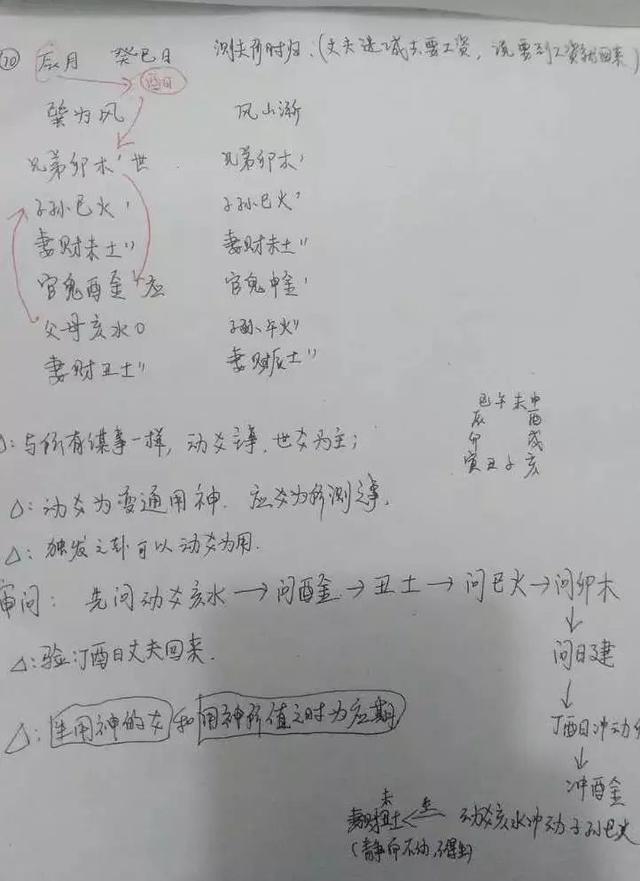 ⑩ 辰月 癸巳日 测夫何时归:(丈夫进城去要工资,说要到工资就回来)
临日
巽为风 风山渐
兄弟卯木' 世 兄弟卯木'
子孙巳火' 子孙巳火'
妻财未土'' 妻财未土''
官鬼酉金' 应 官鬼申金'
父母亥水O 子孙午火''
妻财丑土'' 妻财辰土''
巳午未申
辰 酉
卯 戌
寅丑子亥
△:与所有谋事一样,动爻主事,世爻为主;
△:动爻为变通用神.应爻为所测之事.
△:独发之卦可以动爻为用.
审问:先问动爻亥水→问酉金→丑土→问巳火→问卯木
↓
问日建
↓
△:验:丁酉日丈夫回来.
丁酉日冲动
↓
△:生用神的爻和用神所值之时为应期
冲酉金
未
妻财丑土 ← 生 动爻亥水冲动子孙巳火
(静而不动,不得生)